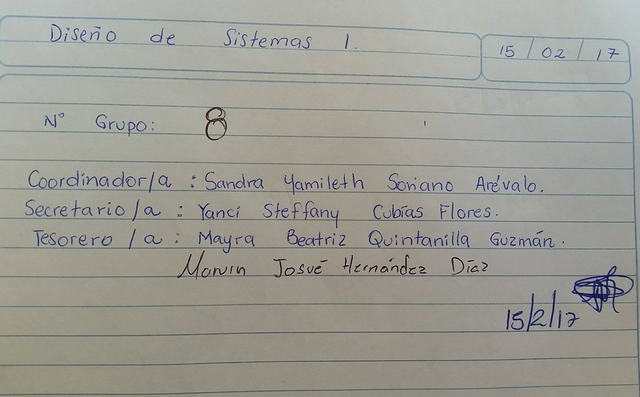 Diseño de Sistemas I.
15 / 02 / 17
N° Grupo: 8
Coordinador/a : Sandra Yamileth Soriano Arévalo.
Secretario/a : Yanci Steffany Cubías Flores.
Tesorero/a : Mayra Beatriz Quintanilla Guzmán.
Marvin Josué Hernández Díaz
15/2/17